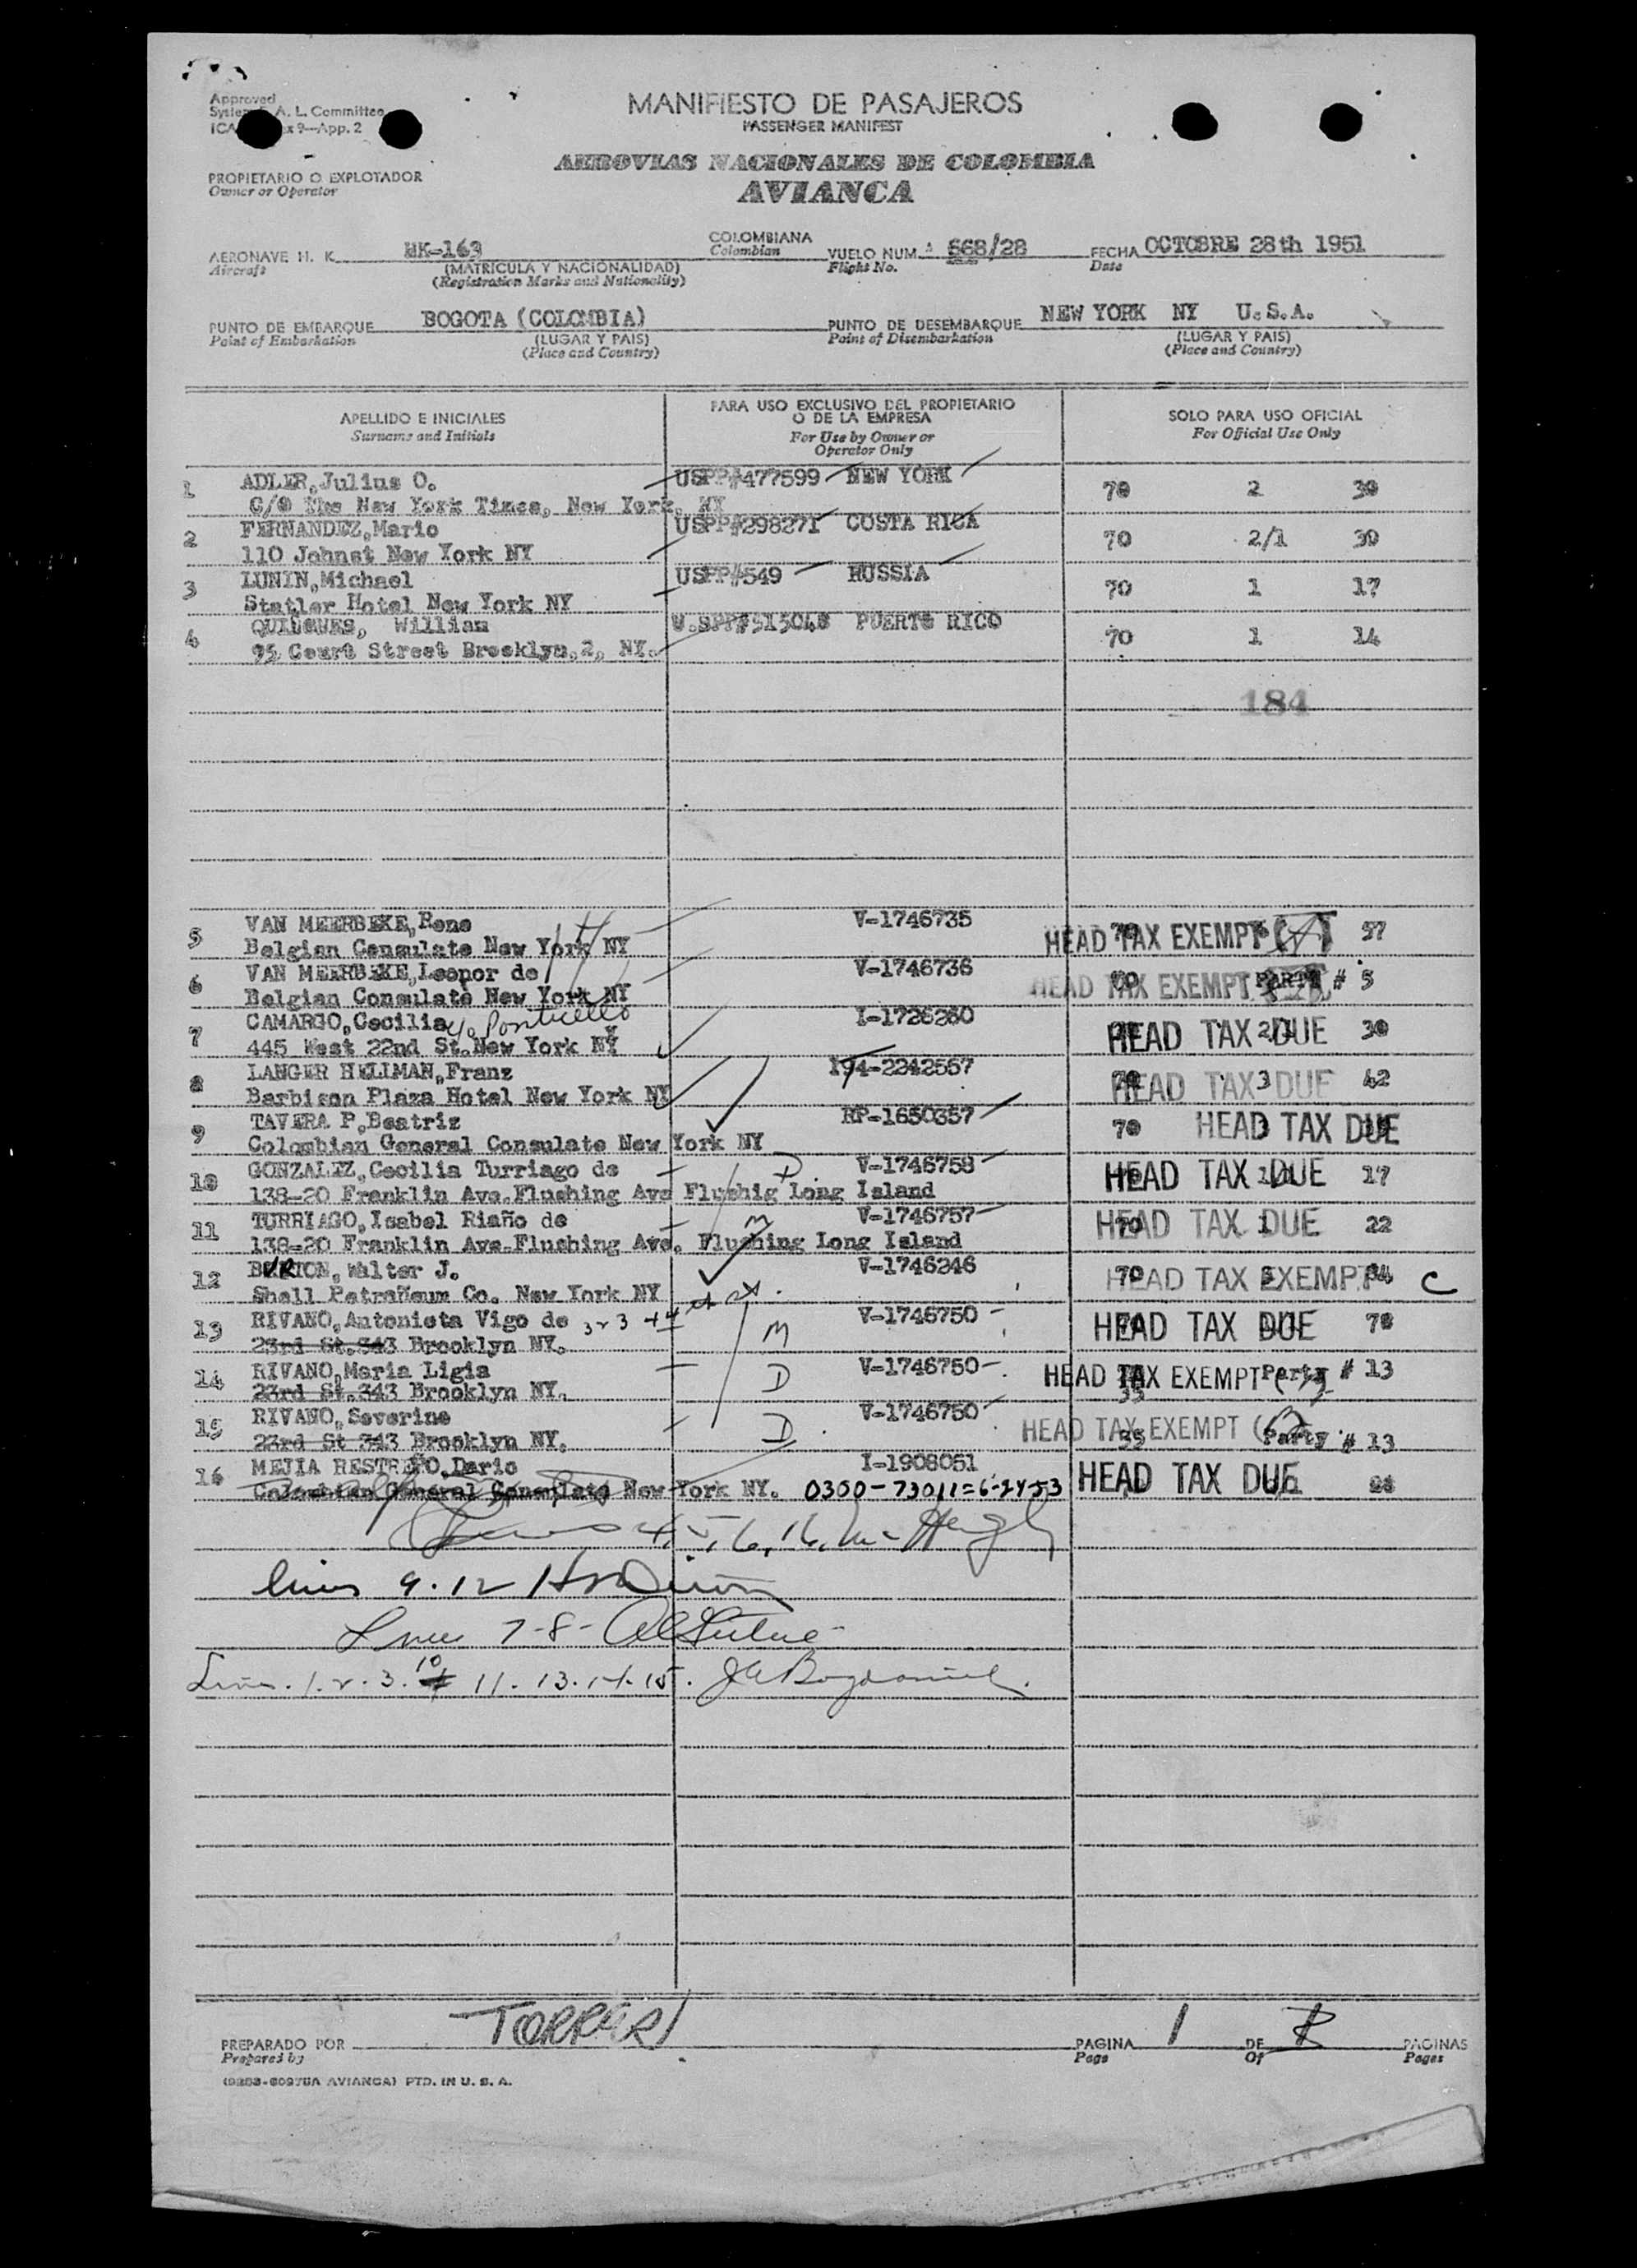 Approved
A. L. Committee
9—App. 2
MANIFIESTO DE PASAJEROS
PASSENGER MANIFEST
AEROVIAS NACIONALES DE COLOMBIA
AVIANCA
PROPIETARIO O EXPLOTADOR
Owner or Operator
AERONAVE H. K. HK-163 COLOMBIANA VUELO NUM. 668/28 FECHA OCTOBRE 28th 1951
Aircraft (MATRICULA Y NACIONALIDAD) Colombian Flight No. Date
(Registration Marks and Nationality)
PUNTO DE EMBARQUE BOGOTA (COLOMBIA) PUNTO DE DESEMBARQUE NEW YORK NY U.S.A.
Point of Embarkation (LUGAR Y PAIS) Point of Disembarkation (LUGAR Y PAIS)
(Place and Country) (Place and Country)
APELLIDO E INICIALES PARA USO EXCLUSIVO DEL PROPIETARIO O DE LA EMPRESA SOLO PARA USO OFICIAL
Surname and Initials For Use by Owner or Operator Only For Official Use Only
1 ADLER,Julius O. USPP#477599 NEW YORK 70 2 30
C/O The New York Times, New York, NY
2 FERNANDEZ,Mario USPP#298271 COSTA RICA 70 2/1 30
110 Johnst New York NY
3 LUNIN,Michael USPP#549 RUSSIA 70 1 17
Statler Hotel New York NY
4 William PUERTO RICO 70 1 14
Court Street Brooklyn,2, NY.
184
5 VAN MEERBEKE,Rene V-1746735 HEAD TAX EXEMPT 57
Belgian Consulate New York NY
6 VAN MEERBEKE,Leonor de V-1746736 HEAD TAX EXEMPT # 5
Belgian Consulate New York NY
7 CAMARGO,Cecilia I-1726260 HEAD TAX DUE 30
445 West 22nd St.New York NY
8 LANGER HELIMAN,Franz 194-2242557 HEAD TAX DUE 42
Barbison Plaza Hotel New York NY
9 TAVERA P,Beatriz RP-1650357 70 HEAD TAX DUE
Colombian General Consulate New York NY
10 GONZALEZ,Cecilia Turriago de D V-1746758 HEAD TAX DUE 17
138-20 Franklin Ave.Flushing Ave Flushig Long Island
11 TURRIAGO,Isabel Riaño de M V-1746757 HEAD TAX DUE 22
138-20 Franklin Ave.Flushing Ave. Flushing Long Island
12 Walter J. V-1746246 HEAD TAX EXEMPT C
Shell Co. New York NY
13 RIVANO,Antonieta Vigo de V-1746750 HEAD TAX DUE 70
23rd St.343 Brooklyn NY. M
14 RIVANO,Maria Ligia V-1746750 HEAD TAX EXEMPT Party # 13
23rd St.343 Brooklyn NY. D
15 RIVANO,Severino V-1746750 HEAD TAX EXEMPT Party # 13
23rd St 343 Brooklyn NY. D
16 MEJIA RESTREPO,Dario I-1908051 HEAD TAX DUE
Colombian General Consulate New York NY. 0300-73011=6-24-53
4, 5, 6, 16,
lines 9.12
Lines 7-8-
Lines. 1.2.3. 10 11. 13. 14. 15.
PREPARADO POR PAGINA 1 DE PAGINAS
Prepared by Page Of Pages
AVIANCA) PTD. IN U. S. A.